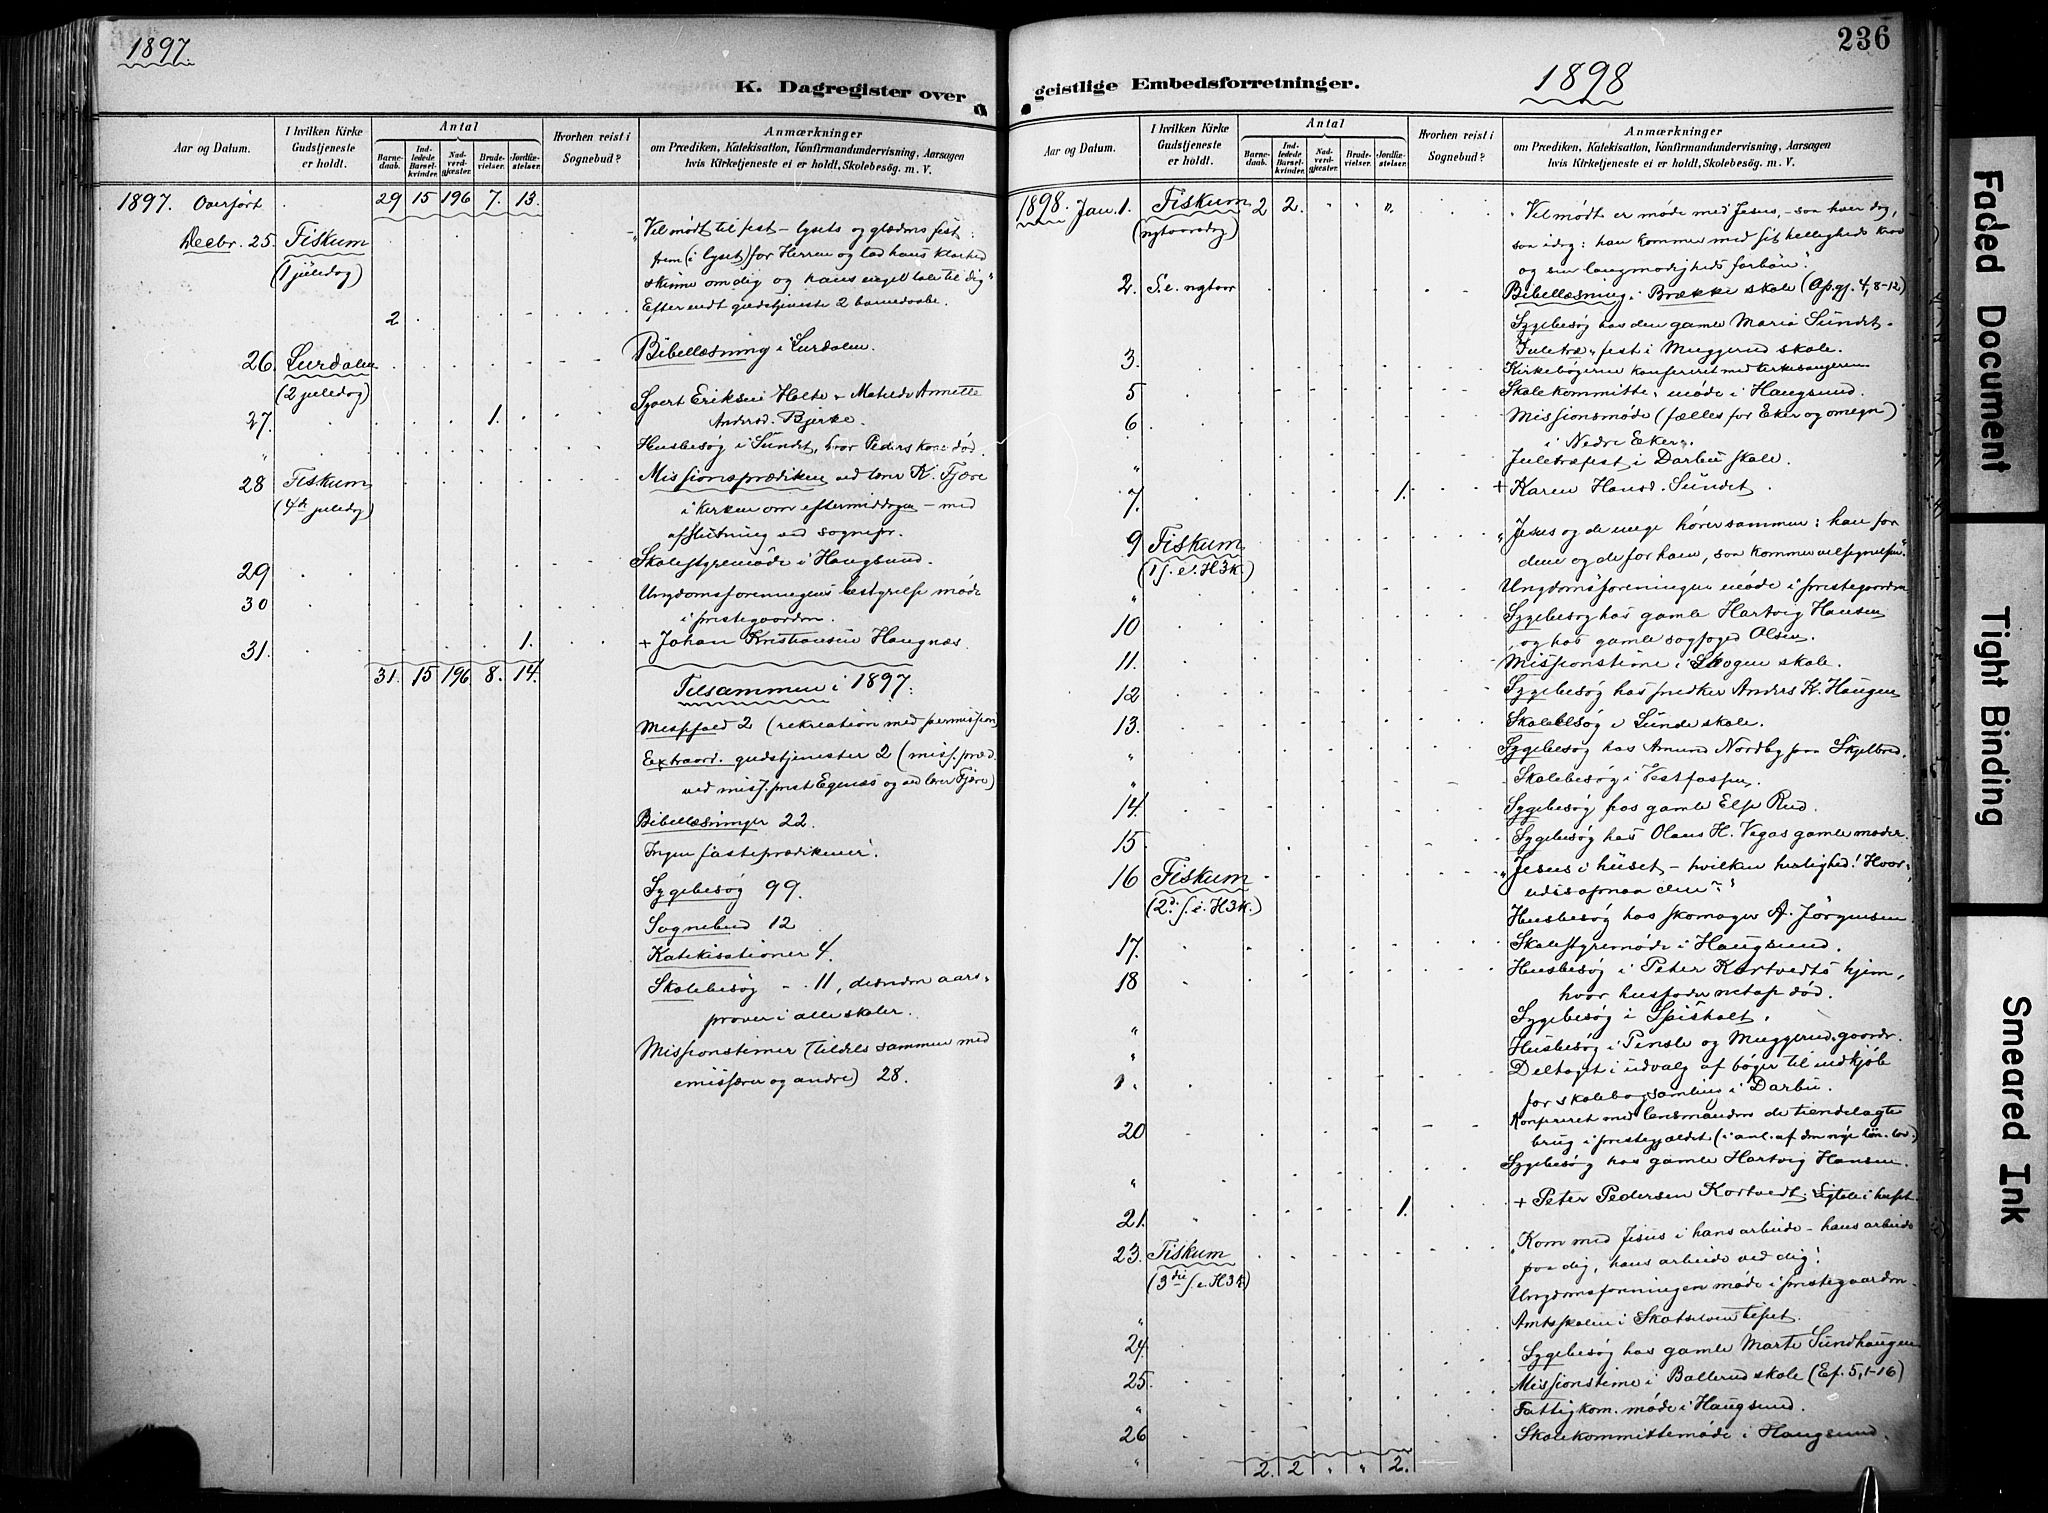 1897.
K. Dagregister over
Aar og Datum.
I hvilken Kirke Gudstjeneste er holdt.
Antal
Barnedaab.
Indledede Barselkvinder.
Nadverdgjester.
Brudevielser.
Jordfæstelser.
Hvorhen reist i Sognebud?
Anmærkninger
om Prædiken, Katekisation, Konfirmandundervisning, Aarsagen
hvis Kirketjeneste ei er holdt, Skolebesög. m. V.
1897. Overført 29 15 196 7. 13.
Decbr. 25. Fiskum "Velmødt til fest – lysets og glædens fest:
(1 juledag) frem (i lyset) for Herren og lad hans klarhed
skinne om dig og hans engel tale til dig"
2 Efter endt gudstjeneste 2 barnedaabe.
26. Lurdalen Bibellæsning i Lurdalen.
(2 juledag)
27. 1. Syvert Eriksen Holte & Matilde Annette
Andersd. Bjerke.
" Husbesøg i Sundet, hvor Peders kone død.
28 Fiskum Missionsprædiken ved lærer K. Fjære
(4de juledag) i kirken om eftermiddagen – med
afslutning ved sognepr.
29 Skolestyremøde i Haugsund.
30 Ungdomsforeningens bestyrelse møde
i prestegaarden.
31. 1. + Johan Kristiansen Haugnæs.
31. 15 196 8. 14.
Tilsammen i 1897:
Messfald 2 (rekreation med permission)
Extraord. gudstjenester 2 (miss. præd.
ved miss. prest Egenæs og ved lærer Fjære)
Bibellæsninger 22.
Ingen fasteprædikener.
Sygebesøg 99.
Sognebud 12
Katekisationer 4.
Skolebesøg – 11, desuden aars-
prøver i alle skoler.
Missionstimer (tildels sammen med
emissærer og andre) 28.
236
geistlige Embedsforretninger.
1898
Aar og Datum.
I hvilken Kirke Gudstjeneste er holdt.
Antal
Barnedaab.
Indledede Barselkvinder.
Nadverdgjester.
Brudevielser.
Jordfæstelser.
Hvorhen reist i Sognebud?
Anmærkninger
om Prædiken, Katekisation, Konfirmandundervisning, Aarsagen
hvis Kirketjeneste ei er holdt, Skolebesög. m. V.
1898. Jan. 1. Fiskum 2 2. " " ". "Velmødt er møde med Jesus, – saa hver dag,
(nytaarsdag) saa idag: han kommer med sit hellligheds krav
og sin langmodigheds forbøn".
2. S. e. nytaar Bibellæsning i Brække skole (Ap. gj. 4, 8-12)
Sygebesøg hos den gamle Maria Sundet.
3. Juletræ„fest i Muggerud skole.
Kirkebøgerne konfereret med kirkesangeren
5 Skolekommitte„møde i Haugsund.
6 Missionsmøde (fælles for Eker og omegn)
i Nedre Eker.
" Juletræfest i Darbu skole.
7. 1. + Karen Hansd. Sundet.
9 Fiskum "Jesus og de unge hører sammen: han for
(1 s. e. H3k.) dem og de for ham, saa kommer velsignelsen".
" Ungdomsforeningen møde i prestegaarden
10 Sygebesøg hos gamle Hartvig Hansen
og hos gamle sogfoged Olsen.
11. Missionstime i Skogen skole.
12 Sygebesøg hos snedker Anders K. Haugen
13. Skolebesøg i Sunde skole.
" Sygebesøg hos Amund Nordby paa Skjelbred.
" Skolebesøg i Vestfossen.
14 Sygebesøg hos gamle Else Rud.
15 Sygebesøg hos Olaus H. Vegas gamle moder.
16 Fiskum "Jesus i huset – hvilken herlighed! Hvor-
(2d. s. e. H3k.)
Husbesøg hos skomager A. Jørgensen.
17. Skolestyremøde i Haugsund.
18 Husbesøg i Peter Kortvedts hjem,
hvor husfader netop død.
" Sygebesøg i Spisholt.
" Husbesøg i Tinsle og Muggerud„gaardr.
". Deltaget i udvalg af bøger til indkjøb
for skolebogsamling i Darbu.
20 Konfereret med lensmanden de tiendelagte
brug i prestegjældet (i anl. af den nye løn. lov.)
" Sygebesøg hos gamle Hartvig Hansen.
21. 1. + Peter Pedersen Kortvedt. Ligtale i huset.
23. Fiskum "Kom med Jesus i hans arbeide – hans arbeide
(3die s. e. H3k) paa dig, hans arbeide ved dig!
Ungdomsforeningen møde i prestegaarden.
" Amtsskolen i Skotselven
24. Sygebesøg hos gamle Marte Sundhaugen
25 Missionstime i Bollerud skole (Ef. 5, 1-16)
" Fattigkom. møde i Haugsund.
26 Skolekommittemøde i Haugsund.
" 2. 2 " " 2.
Faded Document
Tight Binding
Smeared Ink